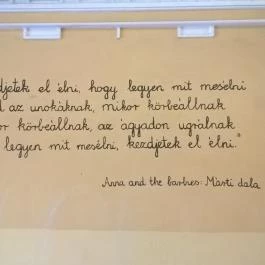 élni, hogy legyen mit mesélni
az unokáknak, mikor körbeállnak
körbeállnak, az ágyadon ugrálnak
legyen mit mesélni, kezdjetek el élni."
Anna and the barbies: Márti dala